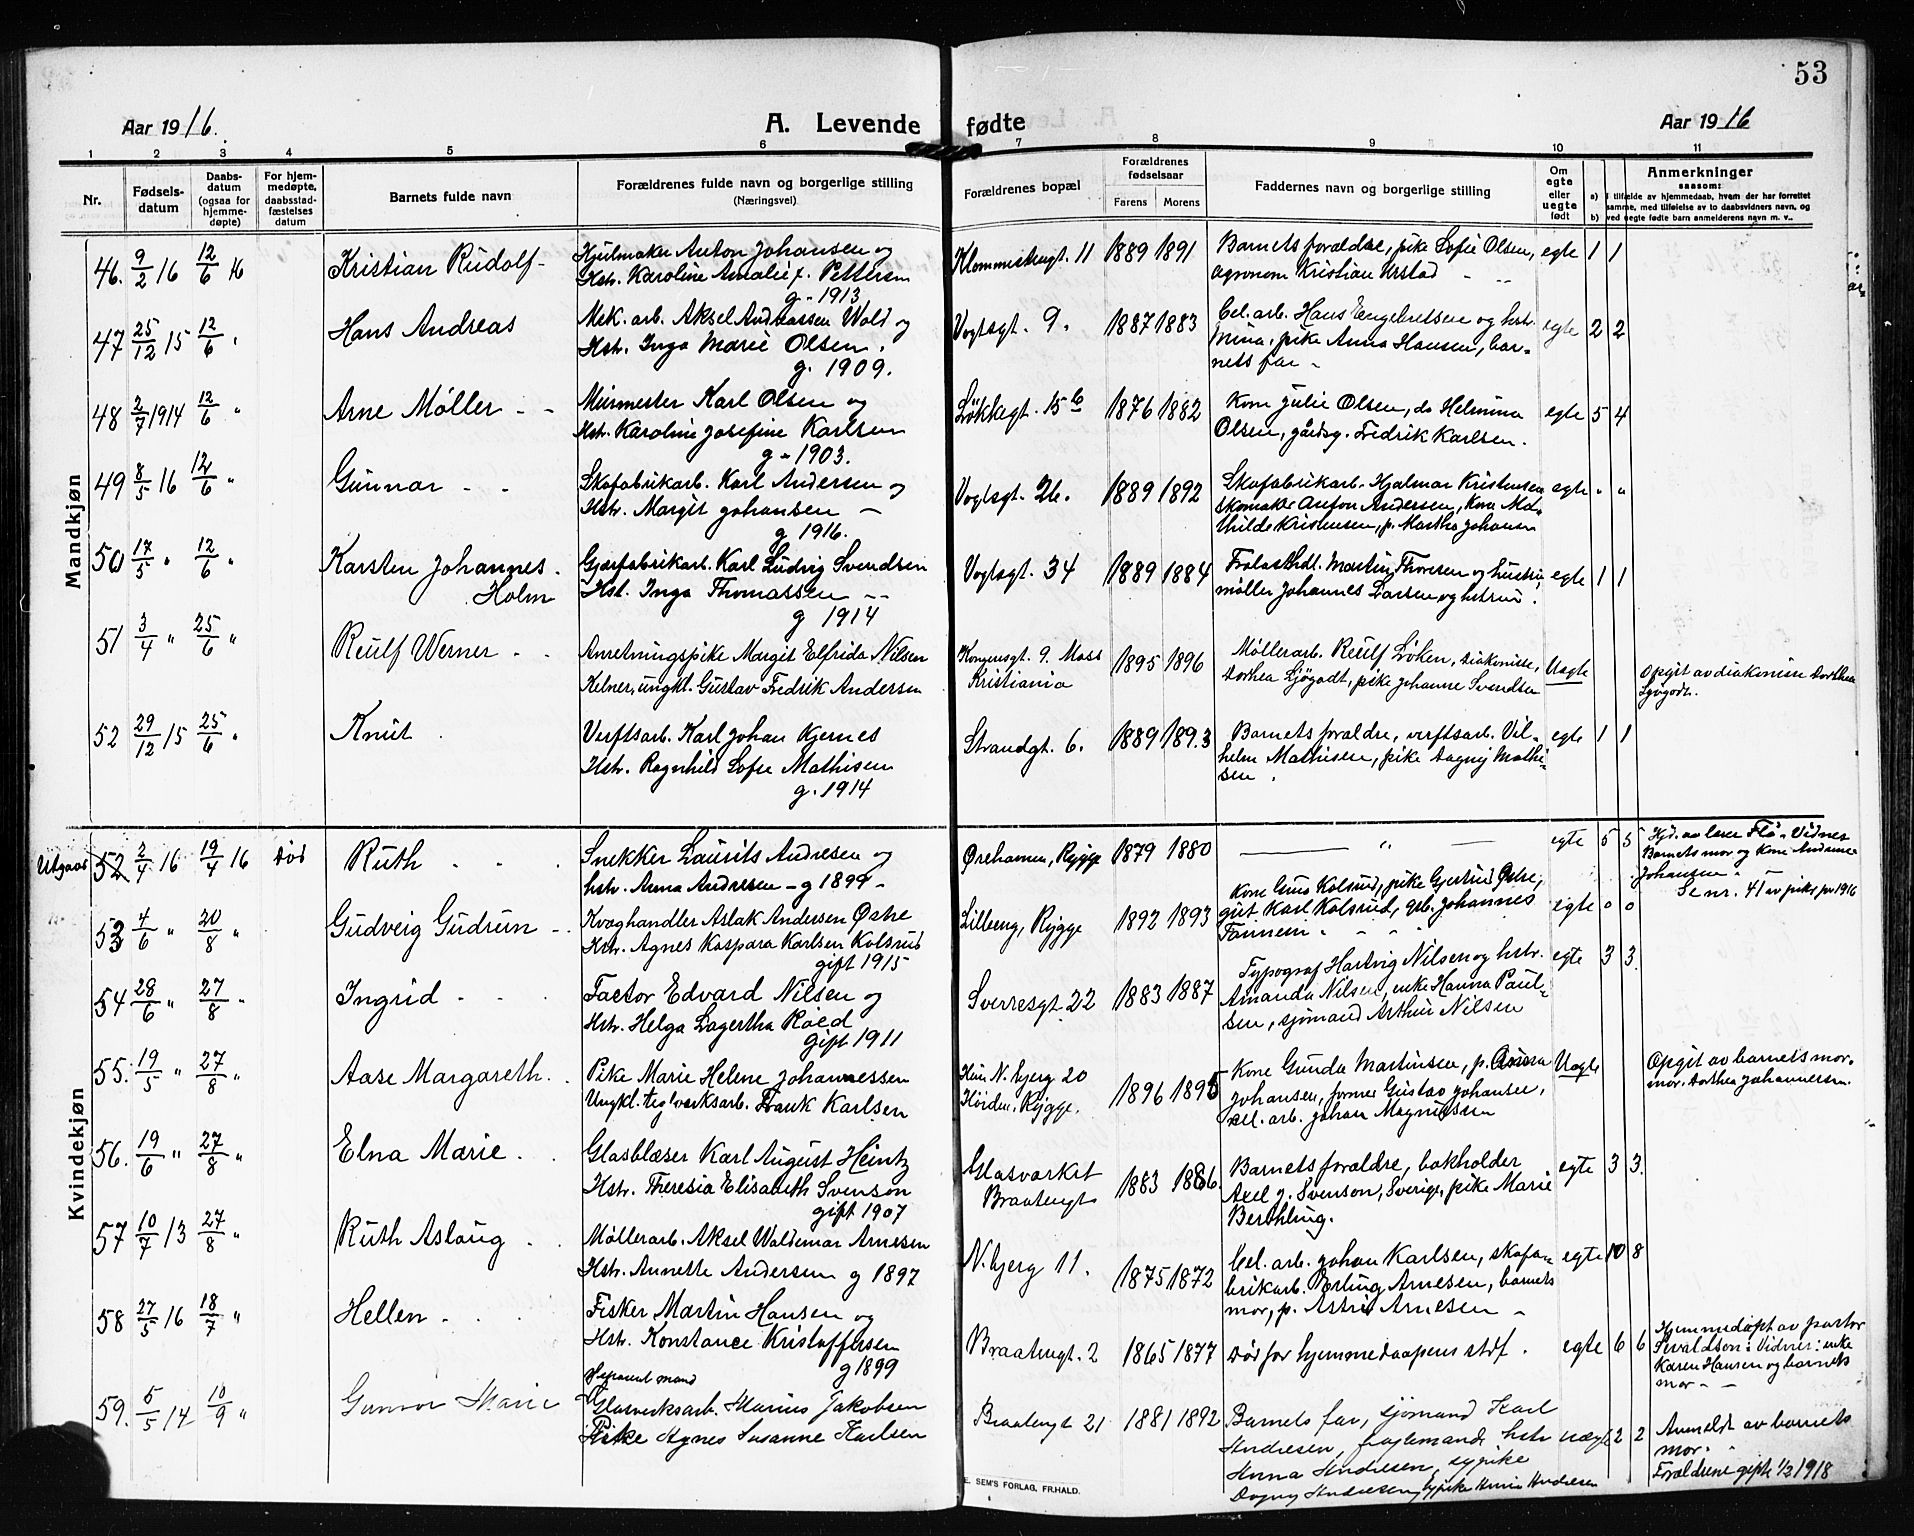 53
Aar 1916.
A. Levende fødte
Aar 1916
1 2 3 4 5 6 7 8 9 10 11
Nr.
Fødsels-
datum
Daabs-
datum
(ogsaa for
hjemme-
døpte)
For hjem-
medøpte,
daabsstad-
fæstelses
datum
Barnets fulde navn
Forældrenes fulde navn og borgerlige stilling
(Næringsvei)
Forældrenes bopæl
Forældrenes
fødselsaar
Farens Morens
Faddernes navn og borgerlige stilling
Om
egte
eller
uegte
født
a)
b)
Anmerkninger
saasom:
i tilfælde av hjemmedaab, hvem der har forrettet
samme, med tilføielse av to daabsvidners navn, og
ved uegte fødte barn anmelderens navn m. v..
Mandkjøn
46. 9/2 16 12/6 16 Kristian Rudolf - Hjulmaker Anton Johansen og Klommestengt. 11 1889 1891 Barnets forældre, pike Lofie Olsen, egte 1 1
Hstr. Karoline Amalie f. Pettersen agronom Kristian Urstad
g. 1913
47 25/12 15 12/6 " Hans Andreas Mek. arb. Aksel Andreassen Wold og Vogtsgt. 9. 1887 1883 Cel. arb. Hans Engebretsen og hstr. egte 2 2
Hstr. Inga Marie Olsen. Mina, pike Anna Hansen, bar-
g. 1909. nets far -
48 2/7 1914 12/6 " Arne Møller - - Murmester Karl Olsen og Løkkegt. 15 b 1876 1882 Kone Julie Olsen, do Helmina egte 5 4
Hstr. Karoline Josefine Karlsen Olsen, gårdsg. Fredrik Karlsen.
g. 1903.
49 8/5 16 12/6 " Gunnar - - Skofabrikarb. Karl Andersen og Vogtsgt. 26. 1889 1892 Skofabrikarb. Hjalmar Kristensen egte " "
Hstr. Margit Johansen - skomaker Anton Andersen, Kone Ma-
g 1916. thilde Kristensen, p. Martha Johansen
50 17/5 " 12/6 " Karsten Johannes Gjærfabrikarb. Karl Ludvig Svendsen Vogtsgt. 34 1889 1884 Trælasthdl. Martin Thoresen og hustru, egte 1 1
Holm Hst. Inga Thomassen -- møller Johannes Larsen og hstru.
g 1914
51 3/4 " 25/6 " Reulf Werner - - Anretningspike Margit Elfrida Nilsen Kongensgt. 9. Moss 1895 1896 Møllerarb. Reulf Løken, diakonisse, Uegte Opgit av diakonisse Dorthea
Kelner, ungkl. Gustav Fredrik Andersen Kristiania Dorthea Ljøgodt, pike Johanne Svendsen Ljøgodt.
52 29/12 15 25/6 " Knut Verftsarb. Karl Johan Kjernes Strandgt. 6. 1889 1893 Barnets forældre, verftsarb. Vil- egte 1 1
Hstr. Ragnhild Lofie Mathisen helm Mathisen, pike Dagny Mathi-
g. 1914 sen
Kvindekjøn
Utgaar 52 2/4 16 19/4 16 Død Ruth Snekker Laurits Andresen og Ørehamen, Rygge 1879 1880 — " — egte 5 5 Hjd. av lærer Flö. Vidner
hstr. Anna Andresen - g 1899 - Barnets mor og Kone Andrine
Johansen -
Se nr. 45 av piker pr 1916
53 4/6 " 20/8 " Gudveig Gudrun - Kvæghandler Aslak Andersen Østre Lilleeng, Rygge 1892 1893 Kone Gina Kolsrud, pike Gjertrud Østre, egte 0 0
Hstr. Agnes Kaspara Karlsen Kolsrud gut Karl Kolsrud, grb. Johannes
gift 1915 Fannem
54 28/6 " 27/8 " Ingrid - - Factor Edvard Nilsen og Sverresgt. 22 1883 1887 Typograf Hartvig Nilsen og hstr. egte 3 3.
Hstr. Helga Lagertha Röed Amanda Nilsen, enke Hanna Paul-
gift 1911 sen, sjømand Arthur Nilsen
55. 19/5 " 27/8 " Aase Margareth. Pike Marie Helene Johannessen Hun N. bjerg 20 1896 1895 Kone Gunda Martinsen, p. Anna Uegte Opgit av barnets mor-
Ungkl. teglverksarb. Frank Karlsen Hörden, Rygge. Johansen, former Gustav Johansen, mor Dorthea Johannessen.
cel. arb. Johan Magnussen
56. 19/6 " 27/8 " Elna Marie Glasblæser Karl August Heintz Glasværket 1883 1886. Barnets forældre, bokholder egte 3 3.
Hstr. Theresia Elisabeth Svenson Braatengt Axel J. Svenson, Sverige, pike Marie
gift 1907 Berthling.
57 10/7 13 27/8 " Ruth Aslaug Møllerarb. Aksel Waldemar Arnesen N. bjerg 11. 1875 1872 Cel. arb. Johan Karlsen, skofa- egte 10 8
Hstr. Annette Andersen g 1897 brikarb. Erling Arnesen, barnets
mor, p. Astrid Arnesen -
58 27/5 16 18/7 " Hellen Fisker Martin Hansen og Braatengt. 2 1865 1877 Død før hjemmedaapens stdf. egte 6 6 Hjemmedøpt av pastor
Hstr. Konstance Kristoffersen Sivaldson. Vidner: enke
g 1899 Karen Hansen og barnets
mor - -
59. 5/5 14 10/9 " Gunvor Marie Separert mand
Glasverksarb. Marius Jakobsen Braatengt 21 1881 1892 Barnets far, sjømand Karl uegte 2 2 Anmeldt av barnets
Pike Agnes Susanne Karlsen Andresen, fraflemande hstr mor.
Anna Andresen, sypike Forældrene gifte 1/2 1918
Dagny Andresen, sypike Anna Andresen
E. SEM'S FORLAG, FR.HALD.